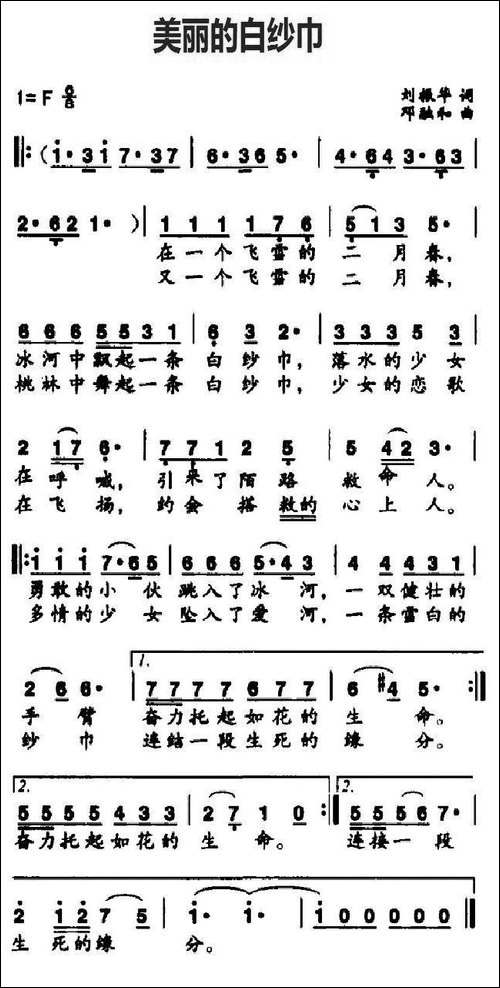 美丽的白纱巾
1=F 6/8
刘振华 词
邓融和 曲
‖:(1·31 7·37 | 6·365· | 4·64 3·63 |
2·62 1· ) | 1 1 1 1 7 6 | 5 1 3 5· |
在一个飞雪的 二 月春,
又一个飞雪的 二 月春,
6 6 6 5 5 3 1 | 6 3 2· | 3 3 3 5 5 |
冰河中飘起一条 白纱巾, 落水的少女
桃林中舞起一条 白纱巾, 少女的恋歌
2 1 7 6· | 7 7 1 2 5 | 5 4 2 3· |
在呼喊, 引来了陌路 救命人。
在飞扬, 约会搭救的 心上人。
‖: 1 1 1 7·65 | 6 6 6 5·43 | 4 4 4 3 1 |
勇敢的小伙 跳入了冰河, 一双健壮的
多情的少女 坠入了爱河, 一条雪白的
1.
2 6 6· | 7 7 7 7 6 7 7 | 6 #4 5· :‖
手臂 奋力托起如花的 生命。
纱巾 连结一段生死的缘分。
2. 2.
5 5 5 5 4 3 3 | 2 7 1 0 :‖ 5 5 5 6 7· |
奋力托起如花的 生命。 连接一段
2 1 2 7 5 | 1· 1· | 1 0 0 0 0 0 ‖
生死的缘 分。